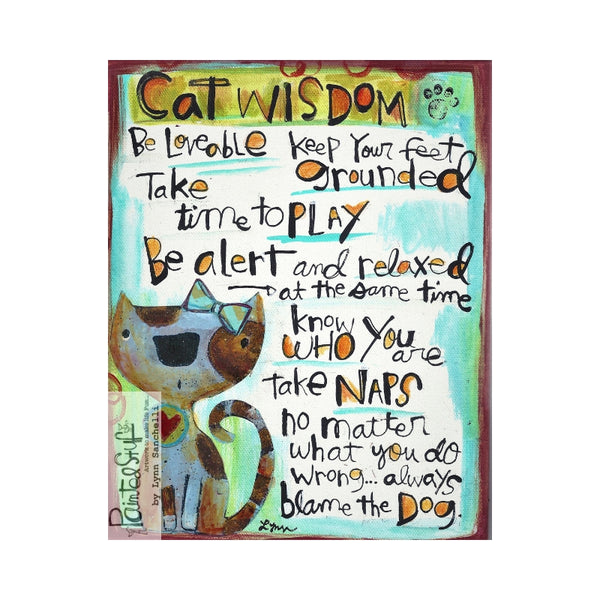 Cat WISDOM
Be Loveable Keep Your feet
grounded
Take
time to PLAY
Be alert and relaxed
at the same time
know
WHO You are
take NAPS
no matter
what you do
wrong... always
blame the Dog.
Lynn
Painted Styl
Artwork to make life Fun...
by Lynn Sanchelli